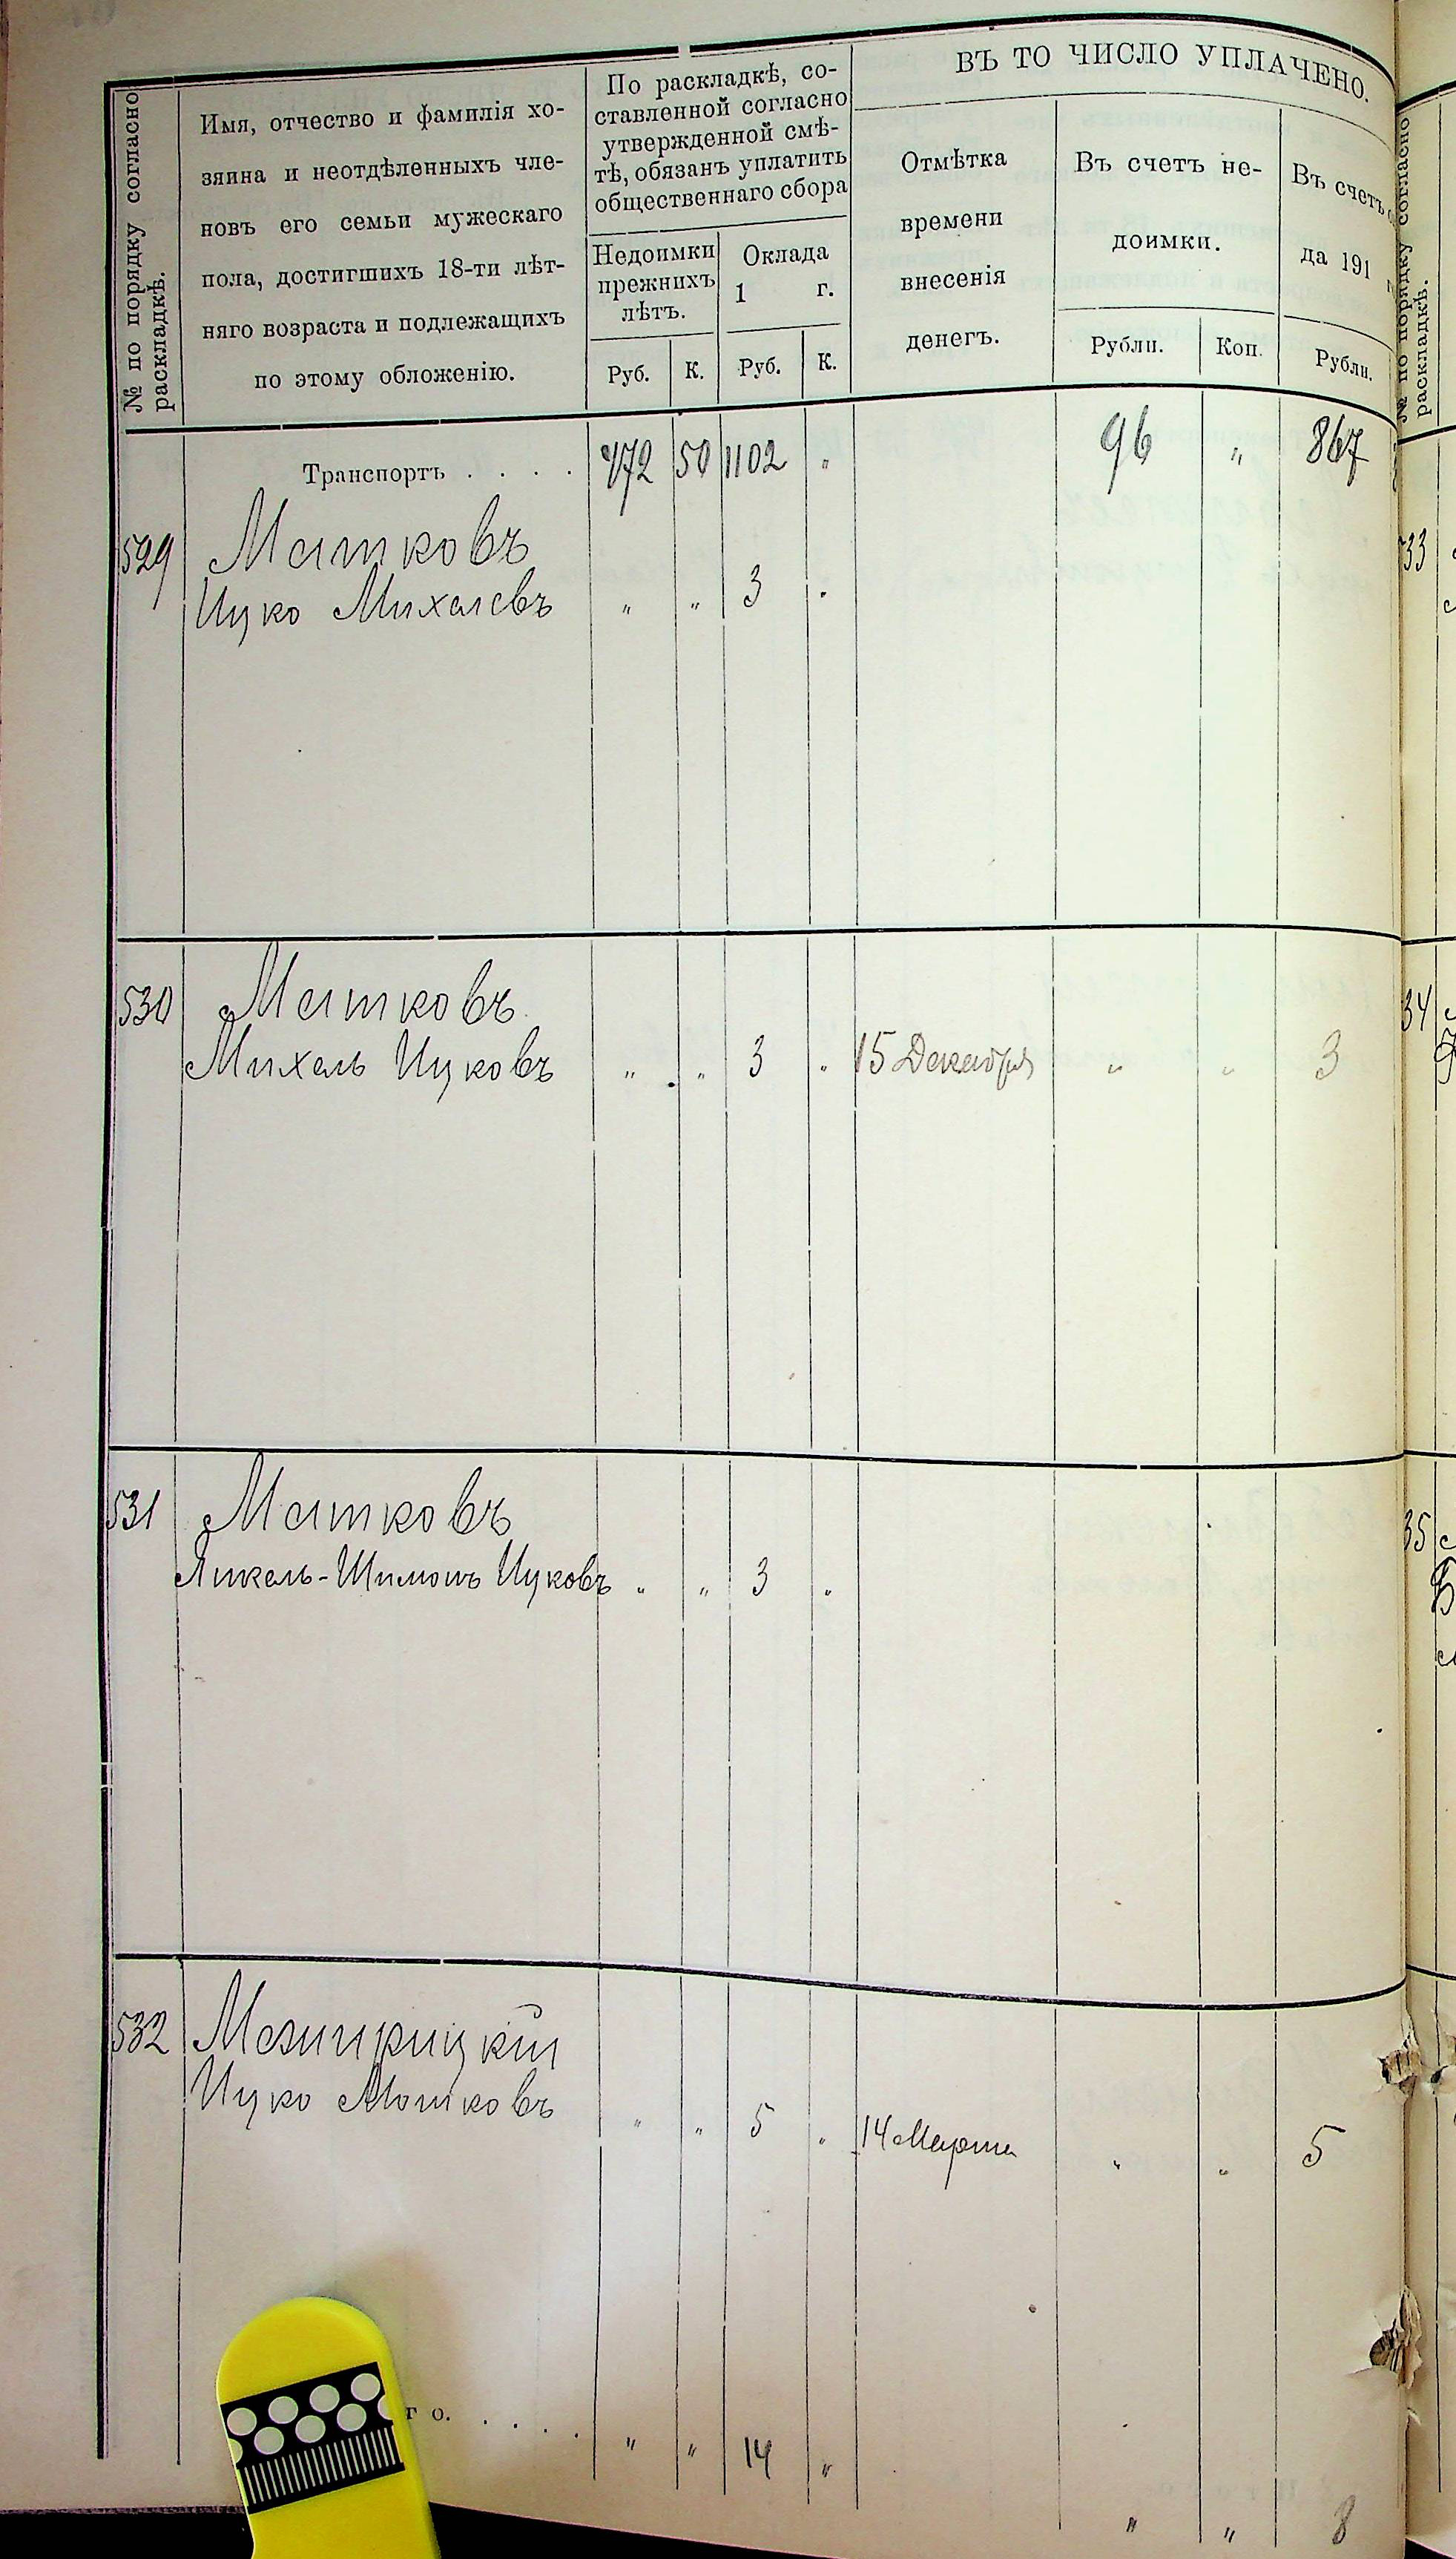 № по порядку согласно
раскладкѣ.
Имя, отчество и фамилія хо-
зяина и неотдѣленныхъ чле-
новъ его семьи мужескаго
пола, достигшихъ 18-ти лѣт-
няго возраста и подлежащихъ
по этому обложенію.
По раскладкѣ, со-
ставленной согласно
утвержденной смѣ-
тѣ, обязанъ уплатить
общественнаго сбора
Недоимки
прежнихъ
лѣтъ.
Оклада
1 г.
Руб. К. Руб. К.
ВЪ ТО ЧИСЛО УПЛАЧЕНО.
Отмѣтка
времени
внесенія
денегъ.
Въ счетъ не-
доимки.
Рубли. Коп.
Въ счетъ
да 191
Рубли.
№ по порядку согласно
раскладкѣ.
Транспортъ . . . . 472 50 1102 " 96 " 867
529 Матковъ
Ицко Михелевъ " " 3 "
530 Матковъ
Михель Ицковъ " " 3 " 15 Декабря " " 3
531 Матковъ
Янкель-Шимонъ Ицковъ " " 3 "
532 Мезирицкій
Ицко Мошковъ " " 5 " 14 Марта " " 5
го. . . . . " " 14 " " " 8
533
34
35